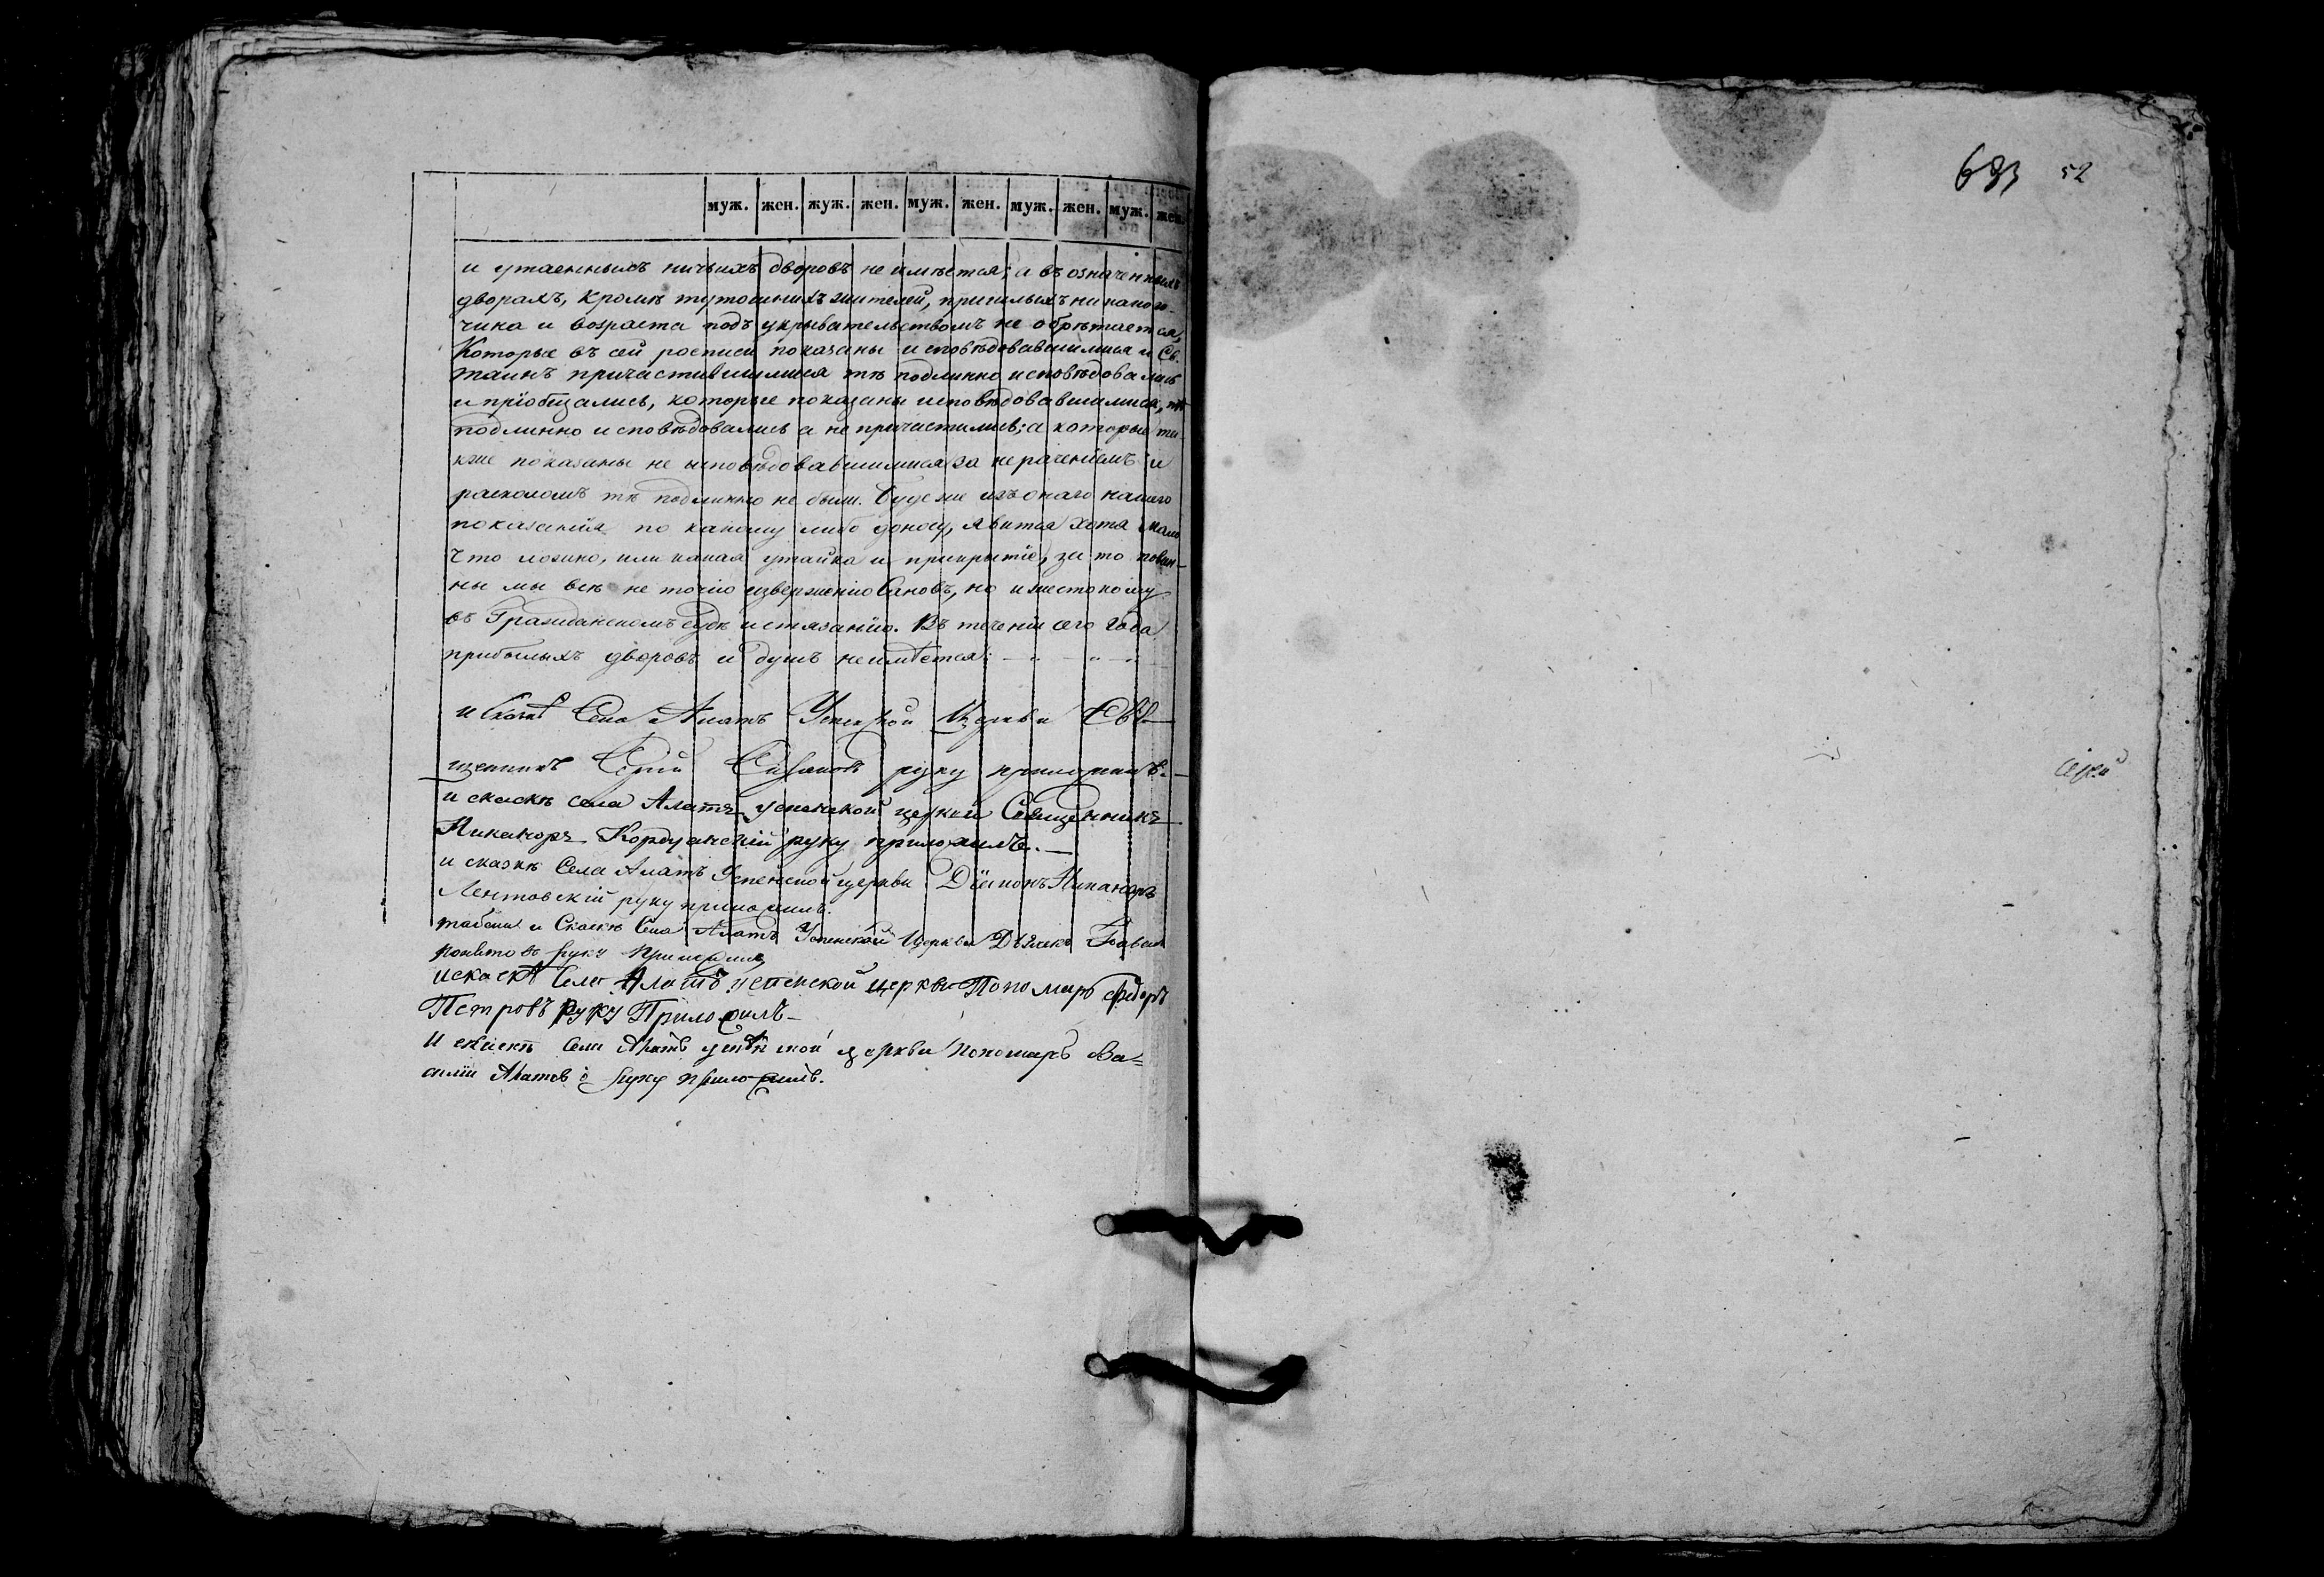 муж. жен. жуж. жен. муж. жен. муж. жен. муж. жен.
и утаенныхъ ничьихъ дворовъ не имѣется; а въ означенныхъ
дворахъ, кромѣ тутошнихъ жителей, пришлыхъ никакого
чина и возраста подъ укрывательствомъ не обрѣтается,
Которые въ сей росписи показаны исповѣдовавшимися и Св.
таинъ причастившимися тѣ подлинно исповѣдовались
и пріобщались, которые показаны исповѣдовавшимися, тѣ
подлинно исповѣдовались а не причастились; а которые та-
кже показаны не исповѣдовавшимися за нераченіемъ и
расколомъ тѣ подлинно не были. Буде же изъ онаго нашего
показанія по какому либо доносу, явится хотя мало
что ложно, или какая утайка и прикрытіе, за то повин-
ны мы всѣ не точію изверженію Сановъ, но и жестокому
въ Гражданскомъ судѣ истязанію. Въ теченіи сего года
прибылыхъ дворовъ и душъ не имѣется:
и Скаскѣ Села Алатъ Успенской Церкви Свя-
щенникъ руку приложилъ.
и скаскѣ села Алатъ успенской церкви Священникъ
Никаноръ руку приложилъ.
и сказкѣ Села Алатъ Успенской церкви Діяконъ Никаноръ
Лентовскій руку приложилъ.
и Скаскѣ Села Алатъ Успенской Церкви Дьячекъ
руку приложилъ
искаскѣ Села Алатъ успенской церкви Пономарь Федоръ
Петровъ руку Приложилъ
И скаскѣ Села Алатъ церкви пономарь Ва=
силій руку приложилъ.
52